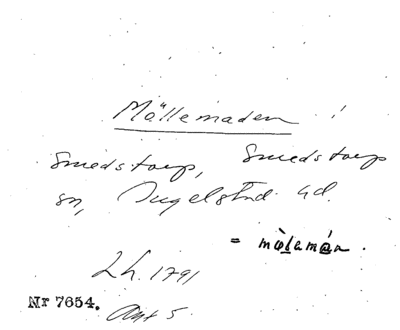 Möllemaden !
Smedstorp, Smedstorp
sn, Ingelstad hd.
= mø̀lamán.
Lh. 1791
Nr 7654. Akt 5